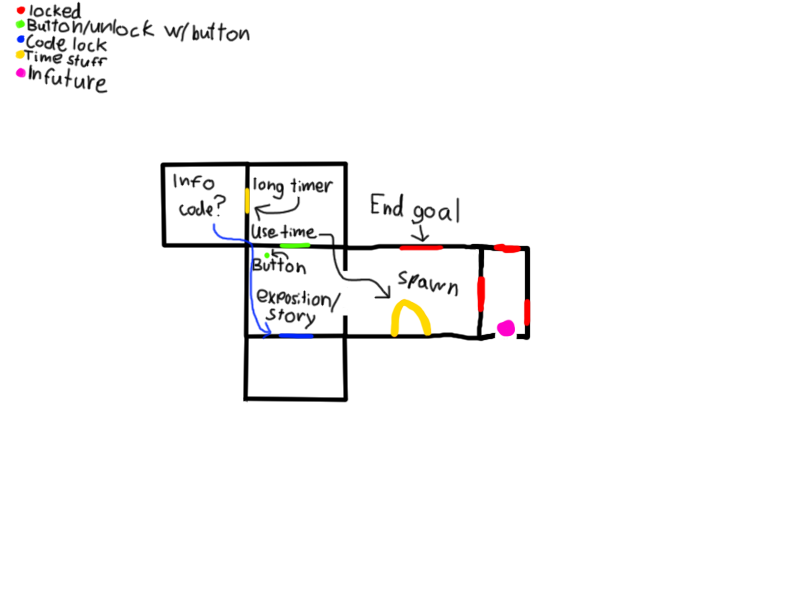 locked
Button/unlock w/button
Code lock
Time stuff
Infuture
Info
code?
long timer
Use time
End goal
Button
exposition/
story
spawn